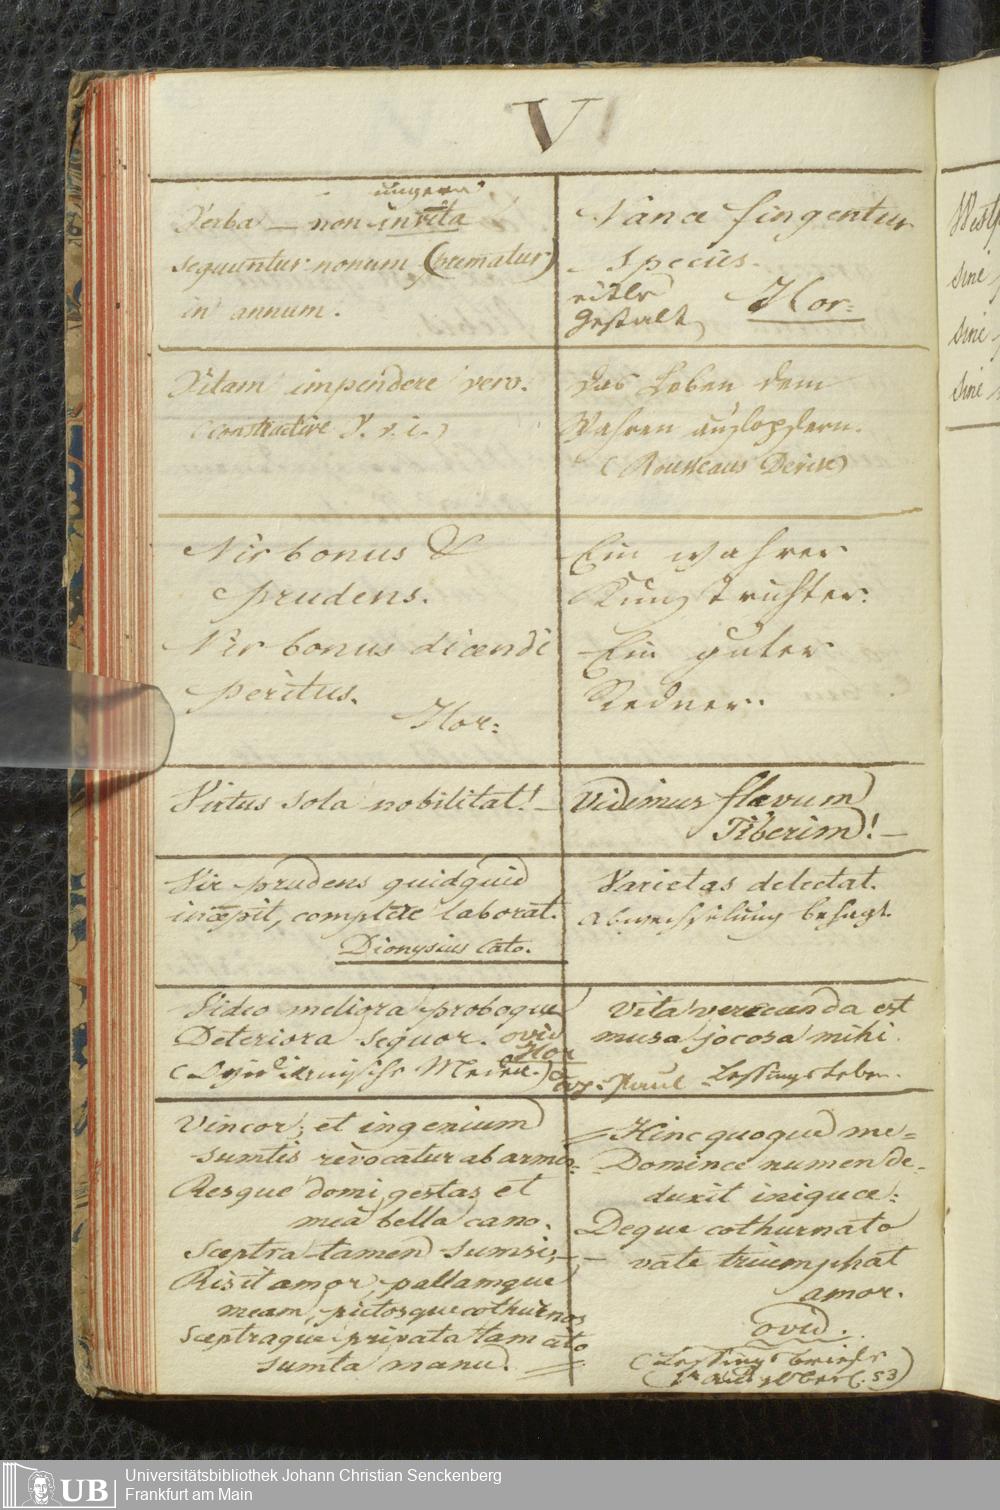 V
ungern
Verba — non invita
sequuntur nonum (prematur)
in annum.
Vanæ fingentur
species.
eitle
Gestalt,
Hor:
Vitam impendere vero.
(constructive V. v. i.)
das Leben dem
Wahren aufopfern.
(Rousseaus Devise)
Vir bonus &
prudens.
Vir bonus dicendi
peritus.
Hor:
Ein wahrer
Kunstrichter.
Ein guter
Redner.
Virtus sola nobilitat! —
Vidimus flavum
Tiberim! —
Vir prudens quidquid
incœpit, complete laborat.
Dionysius Cato.
Varietas delectat.
Abwechselung behagt.
Video meliora proboque
Deteriora sequor. ovid
Hor
Medea.)
Ap: Paul
Vita verecunda est
musa jocosa mihi.
Lessings Leben.
Vincor, et ingenium
sumtis revocatur ab armis
Resque domi gestas et
mea bella cano.
Sceptra tamen sumsi, —
Risit amor, pallamque
meam, pictosque cothurnos
Sceptraque privata tam cito
sumta manu.
— Hinc quoque me
Dominæ numen de-
duxit iniquæ:
Deque cothurnato
— vate triumphat
amor.
ovid.
(Lessings briefe
S. 53)
West
sine
sine
sine
UB
Universitätsbibliothek Johann Christian Senckenberg
Frankfurt am Main